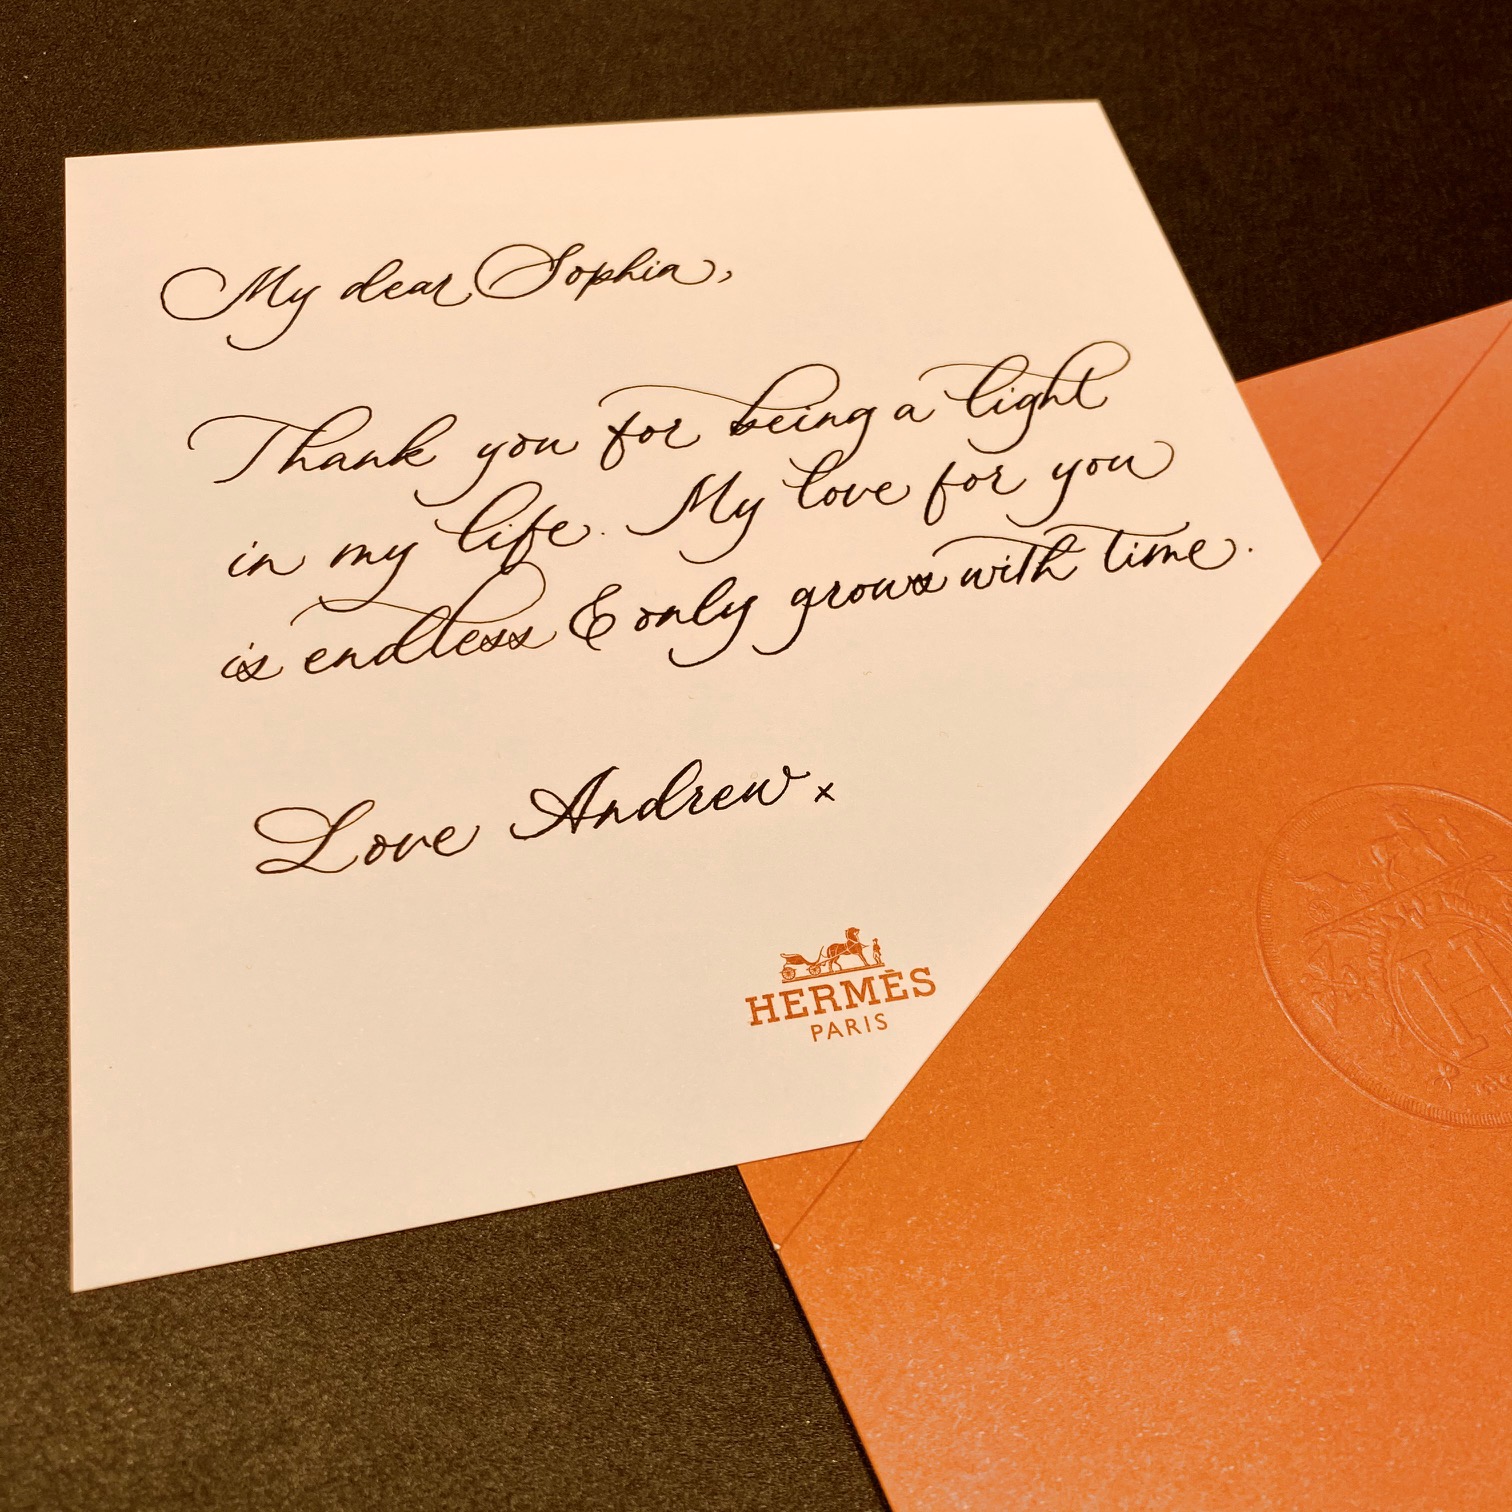 My dear Sophia,
Thank you for being a light
in my life. My love for you
is endless & only grows with time.
Love Andrew x
HERMÈS
PARIS
H